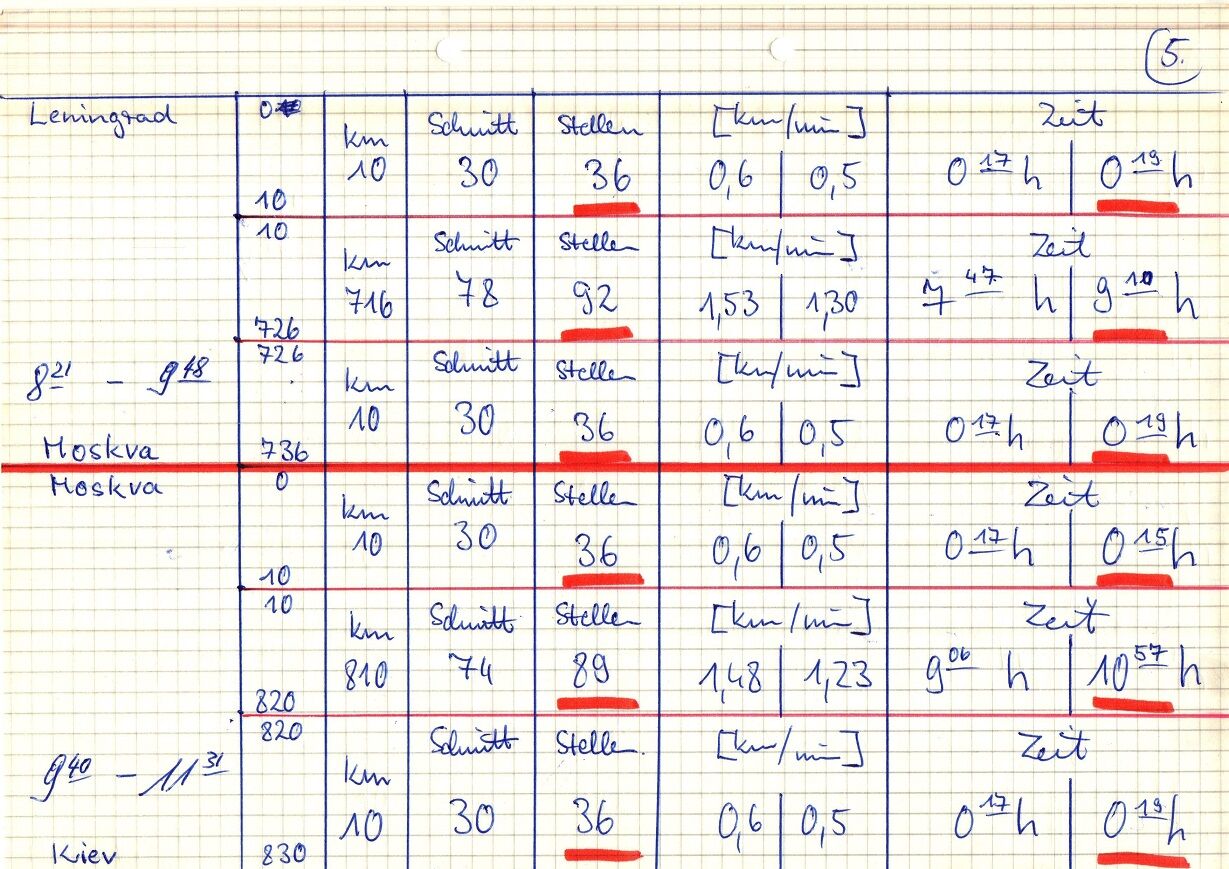 5.
Leningrad 0 km Schnitt Stellen [km/min] Zeit
10 10 30 36 0,6 0,5 0 17 h 0 19 h
10 km Schnitt Stellen [km/min] Zeit
726 716 78 92 1,53 1,30 7 47 h 9 10 h
726 km Schnitt Stellen [km/min] Zeit
8 21 - 9 48
Moskva 736 10 30 36 0,6 0,5 0 17 h 0 19 h
Moskva 0 km Schnitt Stellen [km/min] Zeit
10 10 30 36 0,6 0,5 0 17 h 0 15 h
10 km Schnitt Stellen [km/min] Zeit
820 810 74 89 1,48 1,23 9 06 h 10 57 h
820 km Schnitt Stellen [km/min] Zeit
9 40 - 11 31
Kiev 830 10 30 36 0,6 0,5 0 17 h 0 19 h